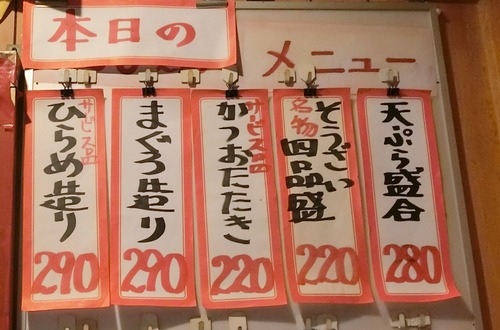 本日の
メニュー
天ぷら盛合
280
名物
そうざい
四品盛
220
サービス品
かつおたたき
220
まぐろ造り
290
サービス品
ひらめ造り
290